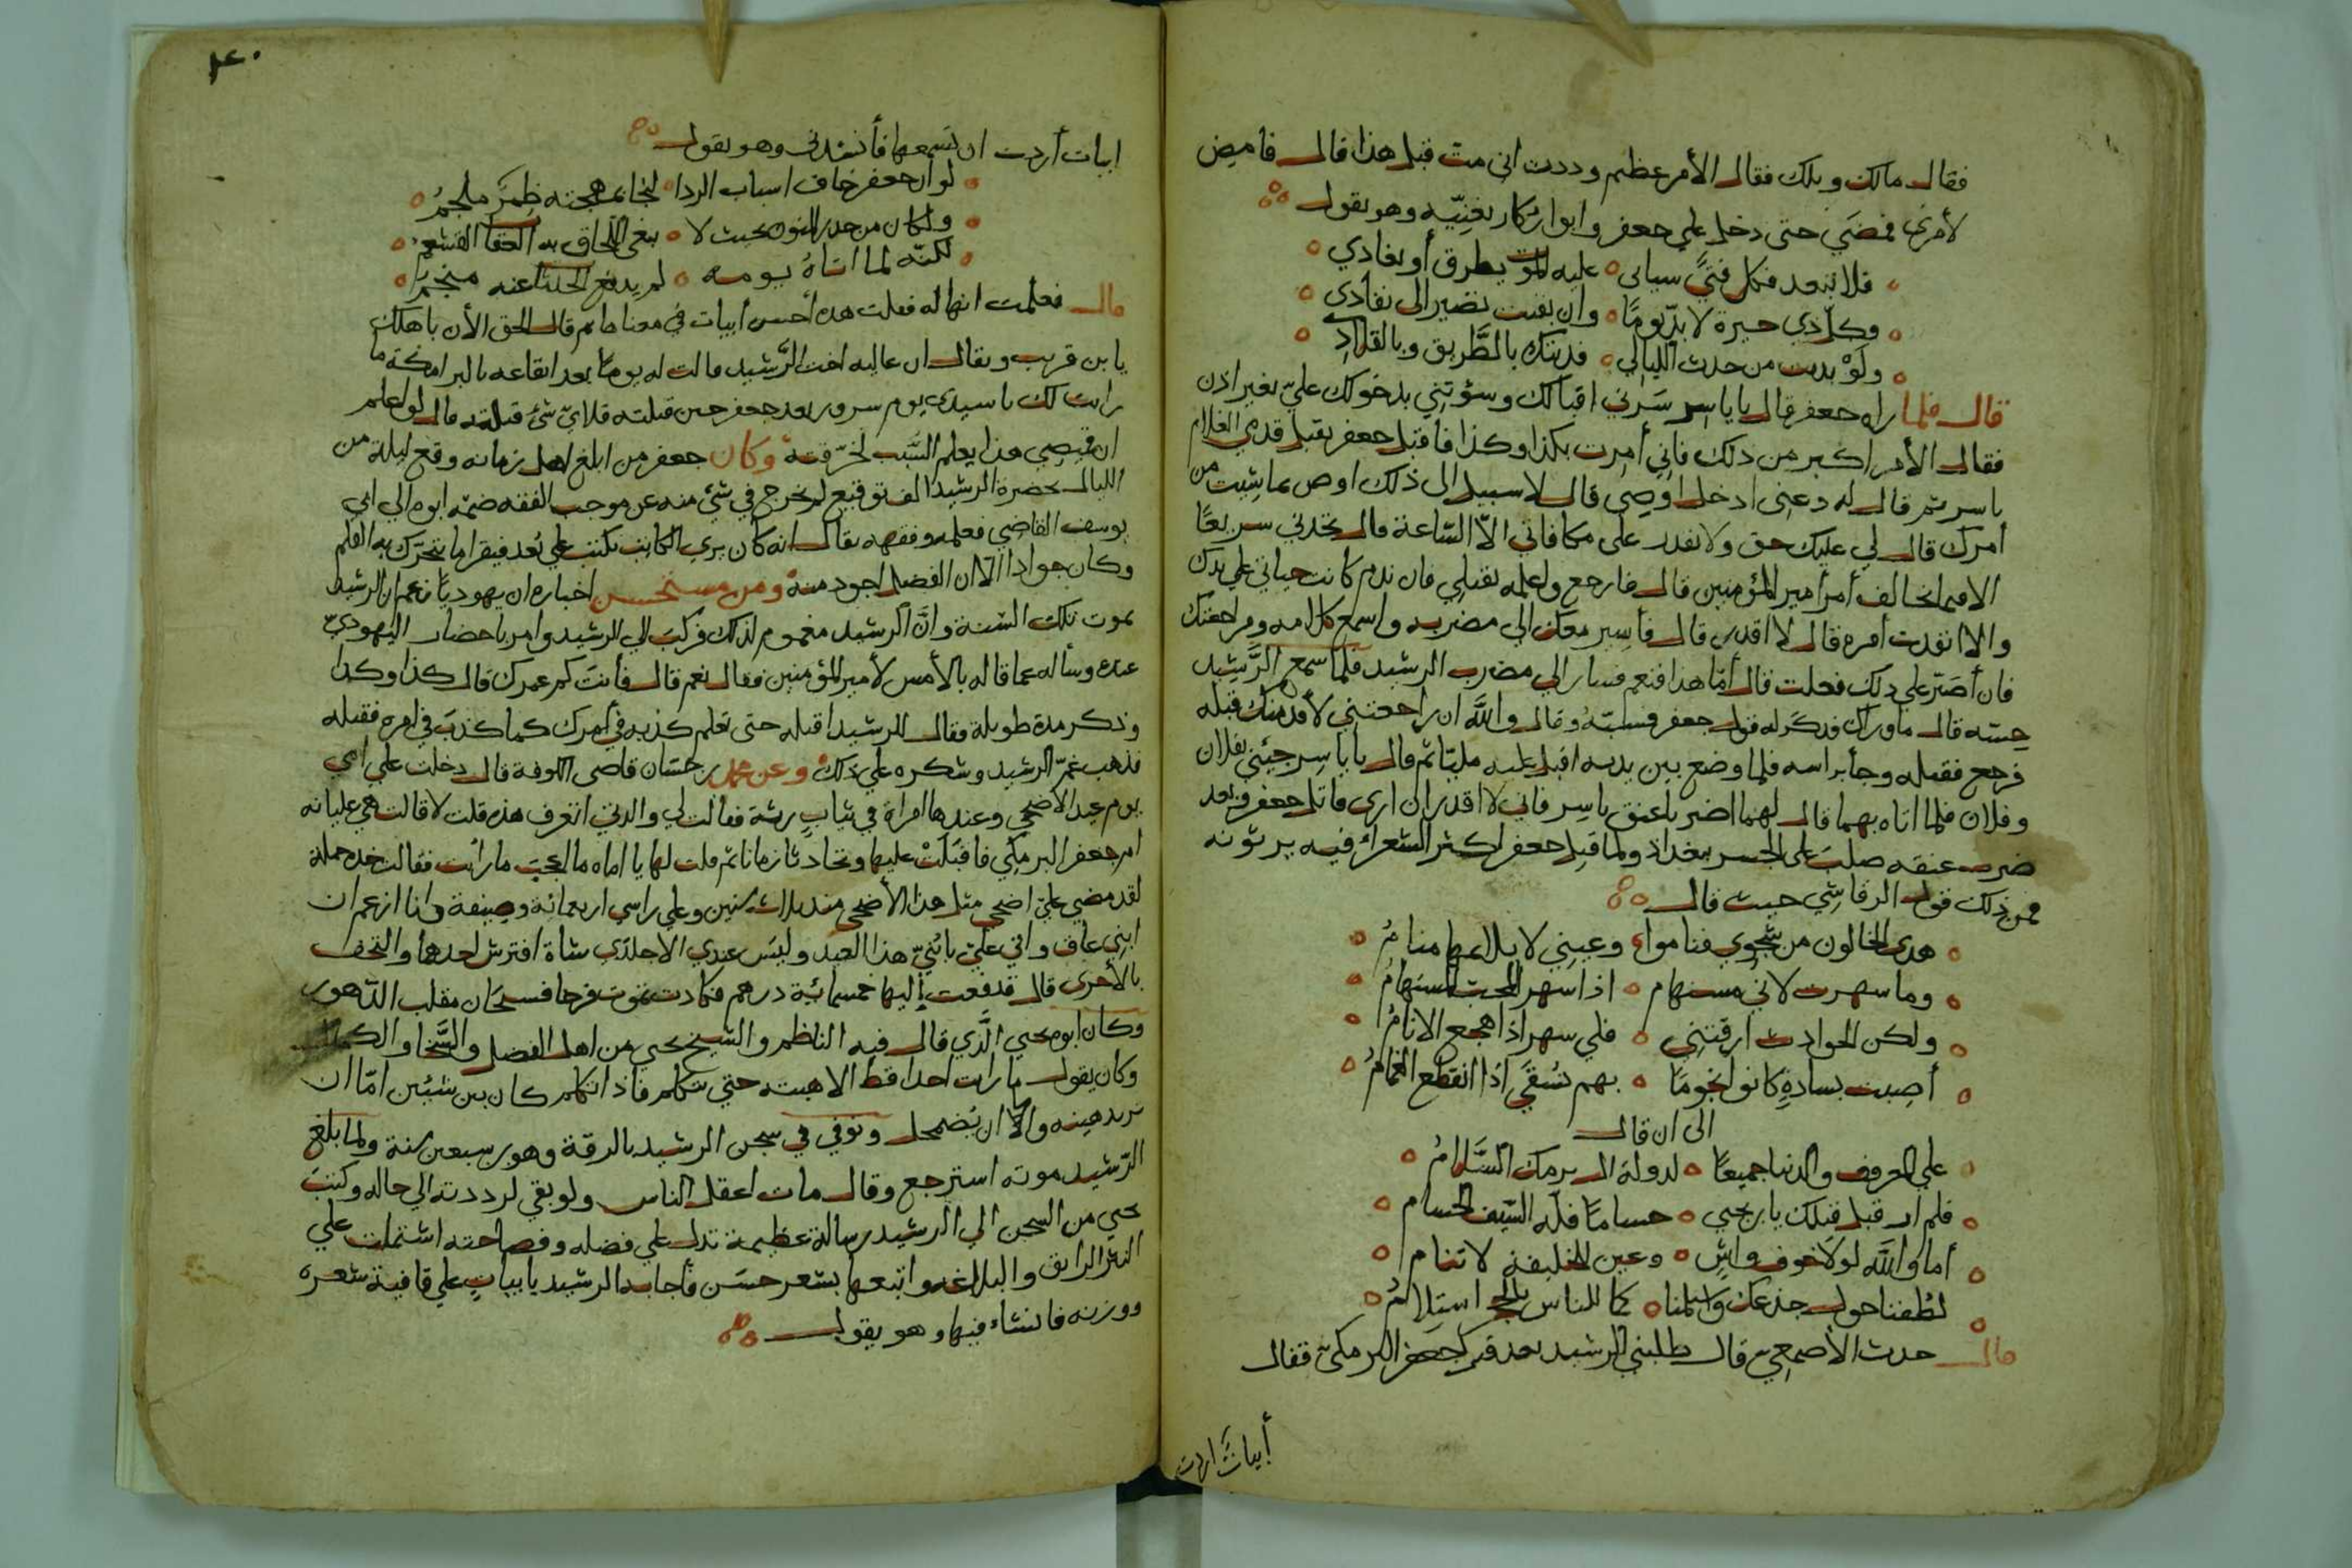 فقال مالك ويلك فقال الأمر عظيم وددت اني مت قبل هذا قال فامض
لأمري فمضى حتى دخل على جعفر وابو زكار يغنيه وهو يقول
فلا تبعد فكل فتى سياتي عليه الموت يطرق أو يغادي
وكل ذي حيرة لا بد يوما وان بقيت تصير الى نفادي
ولو فديت من حدث الليالي فديتك بالطريق وبالتلاد
قال فلما راه جعفر قال يا ياسر سرني اقبالك وسؤتني بدخولك علي بغير اذن
فقال الأمر اكبر من ذلك فاني أمرت بكذا وكذا فاقبل جعفر يقبل قدمي الغلام
ياسر ثم قال له دعني ادخل اوصي قال لا سبيل الى ذلك اوص بما شيت من
أمرك قال لي عليك حق ولا تقدر على مكافاتي الا الساعة قال تجدني سريعا
الا فيما يخالف أمر أمير المؤمنين قال فارجع واعلمه بقتلي فان ندم كانت حياتي على يدك
والا انفذت أمره قال لا اقدر قال فأسير معك الي مضربه واسمع كلامه ومراجعتك
فان أصر على ذلك فعلت قال أما هذا فنعم فسار الي مضرب الرشيد فلما سمع الرشيد
حسه قال ما وراك فذكر له قول جعفر فسبه وقال والله ان راجعتني لأقدمنك قبله
فرجع فقتله وجأ براسه فلما وضع بين يديه اقبل عليه مليا ثم قال يا ياسر جيئني بفلان
وفلان فلما اتاه بهما قال لهما اضربا عنق ياسر فاني لا اقدر ان ارى قاتل جعفر وبعد
ضرب عنقه صلب على الجسر ببغداد ولما قتل جعفر اكثر الشعراء فيه يرثونه
فمن ذلك قول الرقاشي حيث قال
هدى الخالون من شجوي فناموا وعيني لا يلايمها منام
وما سهرت لاني مستهام اذا سهر المحب المستهام
ولكن الحوادث ارقتني فلي سهر اذا هجع الانام
أصبت بسادة كانوا نجوما بهم نسقى اذا انقطع الغمام
الى ان قال
علي المعروف والدنيا جميعا لدولة ال برمك السلام
فلم ار قبل قتلك يا بن يحيى حساما فله السيف الحسام
أما والله لولا خوف واش وعين للخليفة لا تنام
لطفنا حول جذعك واستلمنا كما للناس بالحجر استلام
قال حدث الأصمعي قال طلبني الرشيد بعد قتل جعفر البرمكي فقال
أبيات اردت
١٤٠
ابيات أردت ان تسمعها فأنشدني وهو يقول
لو ان جعفر خاف اسباب الردا لنجا بمهجته طمر ملجم
ولكان من حذر المنون بحيث لا يبغي اللحاق به العقاب القشعم
لكنه لما اتاه يومه لم يدفع الحدثان عنه منجم
قال فعلمت انها له فقلت هذه أحسن أبيات في معناها ثم قال الحق الأن باهلك
يا بن قريب ويقال ان عاليه اخت الرشيد قالت له يوما بعد ايقاعه بالبرامكة ما
رايت لك يا سيدي يوم سرور بعد جعفر حين قتلته فلاي شئ قتلته قال لو اعلم
ان قميصي هذا يعلم السبب لخرقته وكان جعفر من ابلغ اهل زمانه وقع ليلة من
الليالى بحضرة الرشيد الف توقيع لم يخرج في شئ منه عن موجب الفقه ضمه ابوه الي ابي
يوسف القاضي فعلمه وفقهه يقال انه كان يرى الكاتب يكتب على بعد فيقرا ما يتحرك به القلم
وكان جوادا الا ان الفضل اجود منه ومن مستحسن اخباره ان يهوديا زعم ان الرشيد
يموت تلك السنة وان الرشيد مغموم لذلك فركب الي الرشيد وامر باحضار اليهودي
عنده وسأله عما قاله بالأمس لأمير المؤمنين فقال نعم قال فأنت كم عمرك قال كذا وكذا
وذكر مدة طويلة فقال للرشيد اقتله حتى تعلم كذبه في أمرك كما كذب في امره فقتله
فذهب غم الرشيد وشكره علي ذلك وعن محمد بن حسان قاضي الكوفة قال دخلت على امي
يوم عيد الأضحى وعندها امراة في ثياب رثة فقالت لي والدتي اتعرف هذه قلت لا قالت هي عليانه
ام جعفر البرمكي فاقبلت عليها وتحادثنا زمانا ثم قلت لها يا اماه ما اعجب ما رأيت فقالت خذ جملة
لقد مضى علي اضحى مثل هذا الأضحى منذ ثلاث سنين وعلى راسي اربعمائة وصيفة وانا ازعم ان
ابني عاف واني علي يا بني هذا العيد وليس عندي الا جلدي شاة افترش احدهما والتحف
بالأخرى قال فدفعت إليها خمسمائة درهم فكادت تموت فرحا فسبحان مقلب الدهور
وكان ابوه يحيى الذي قال فيه الناظم والشيخ يحيى من اهل الفضل والسخا والكمال
وكان يقول ما رايت احدا قط الا هبته حتى يتكلم فاذا تكلم كان بين شيئين اما ان
تزيد هيبته والا ان يضمحل وتوفي في سجن الرشيد بالرقة وهو بن سبعين سنة ولما بلغ
الرشيد موته استرجع وقال مات اعقل الناس ولو بقي لرددته الي حاله وكتب
يحيى من السجن الي الرشيد رسالة عظيمة تدل علي فضله وفصاحته اشتملت على
النثر الرايق والبلاغه واتبعها بشعر حسن فأجابه الرشيد بابيات على قافية شعره
ووزنه فانشاء فيها وهو يقول